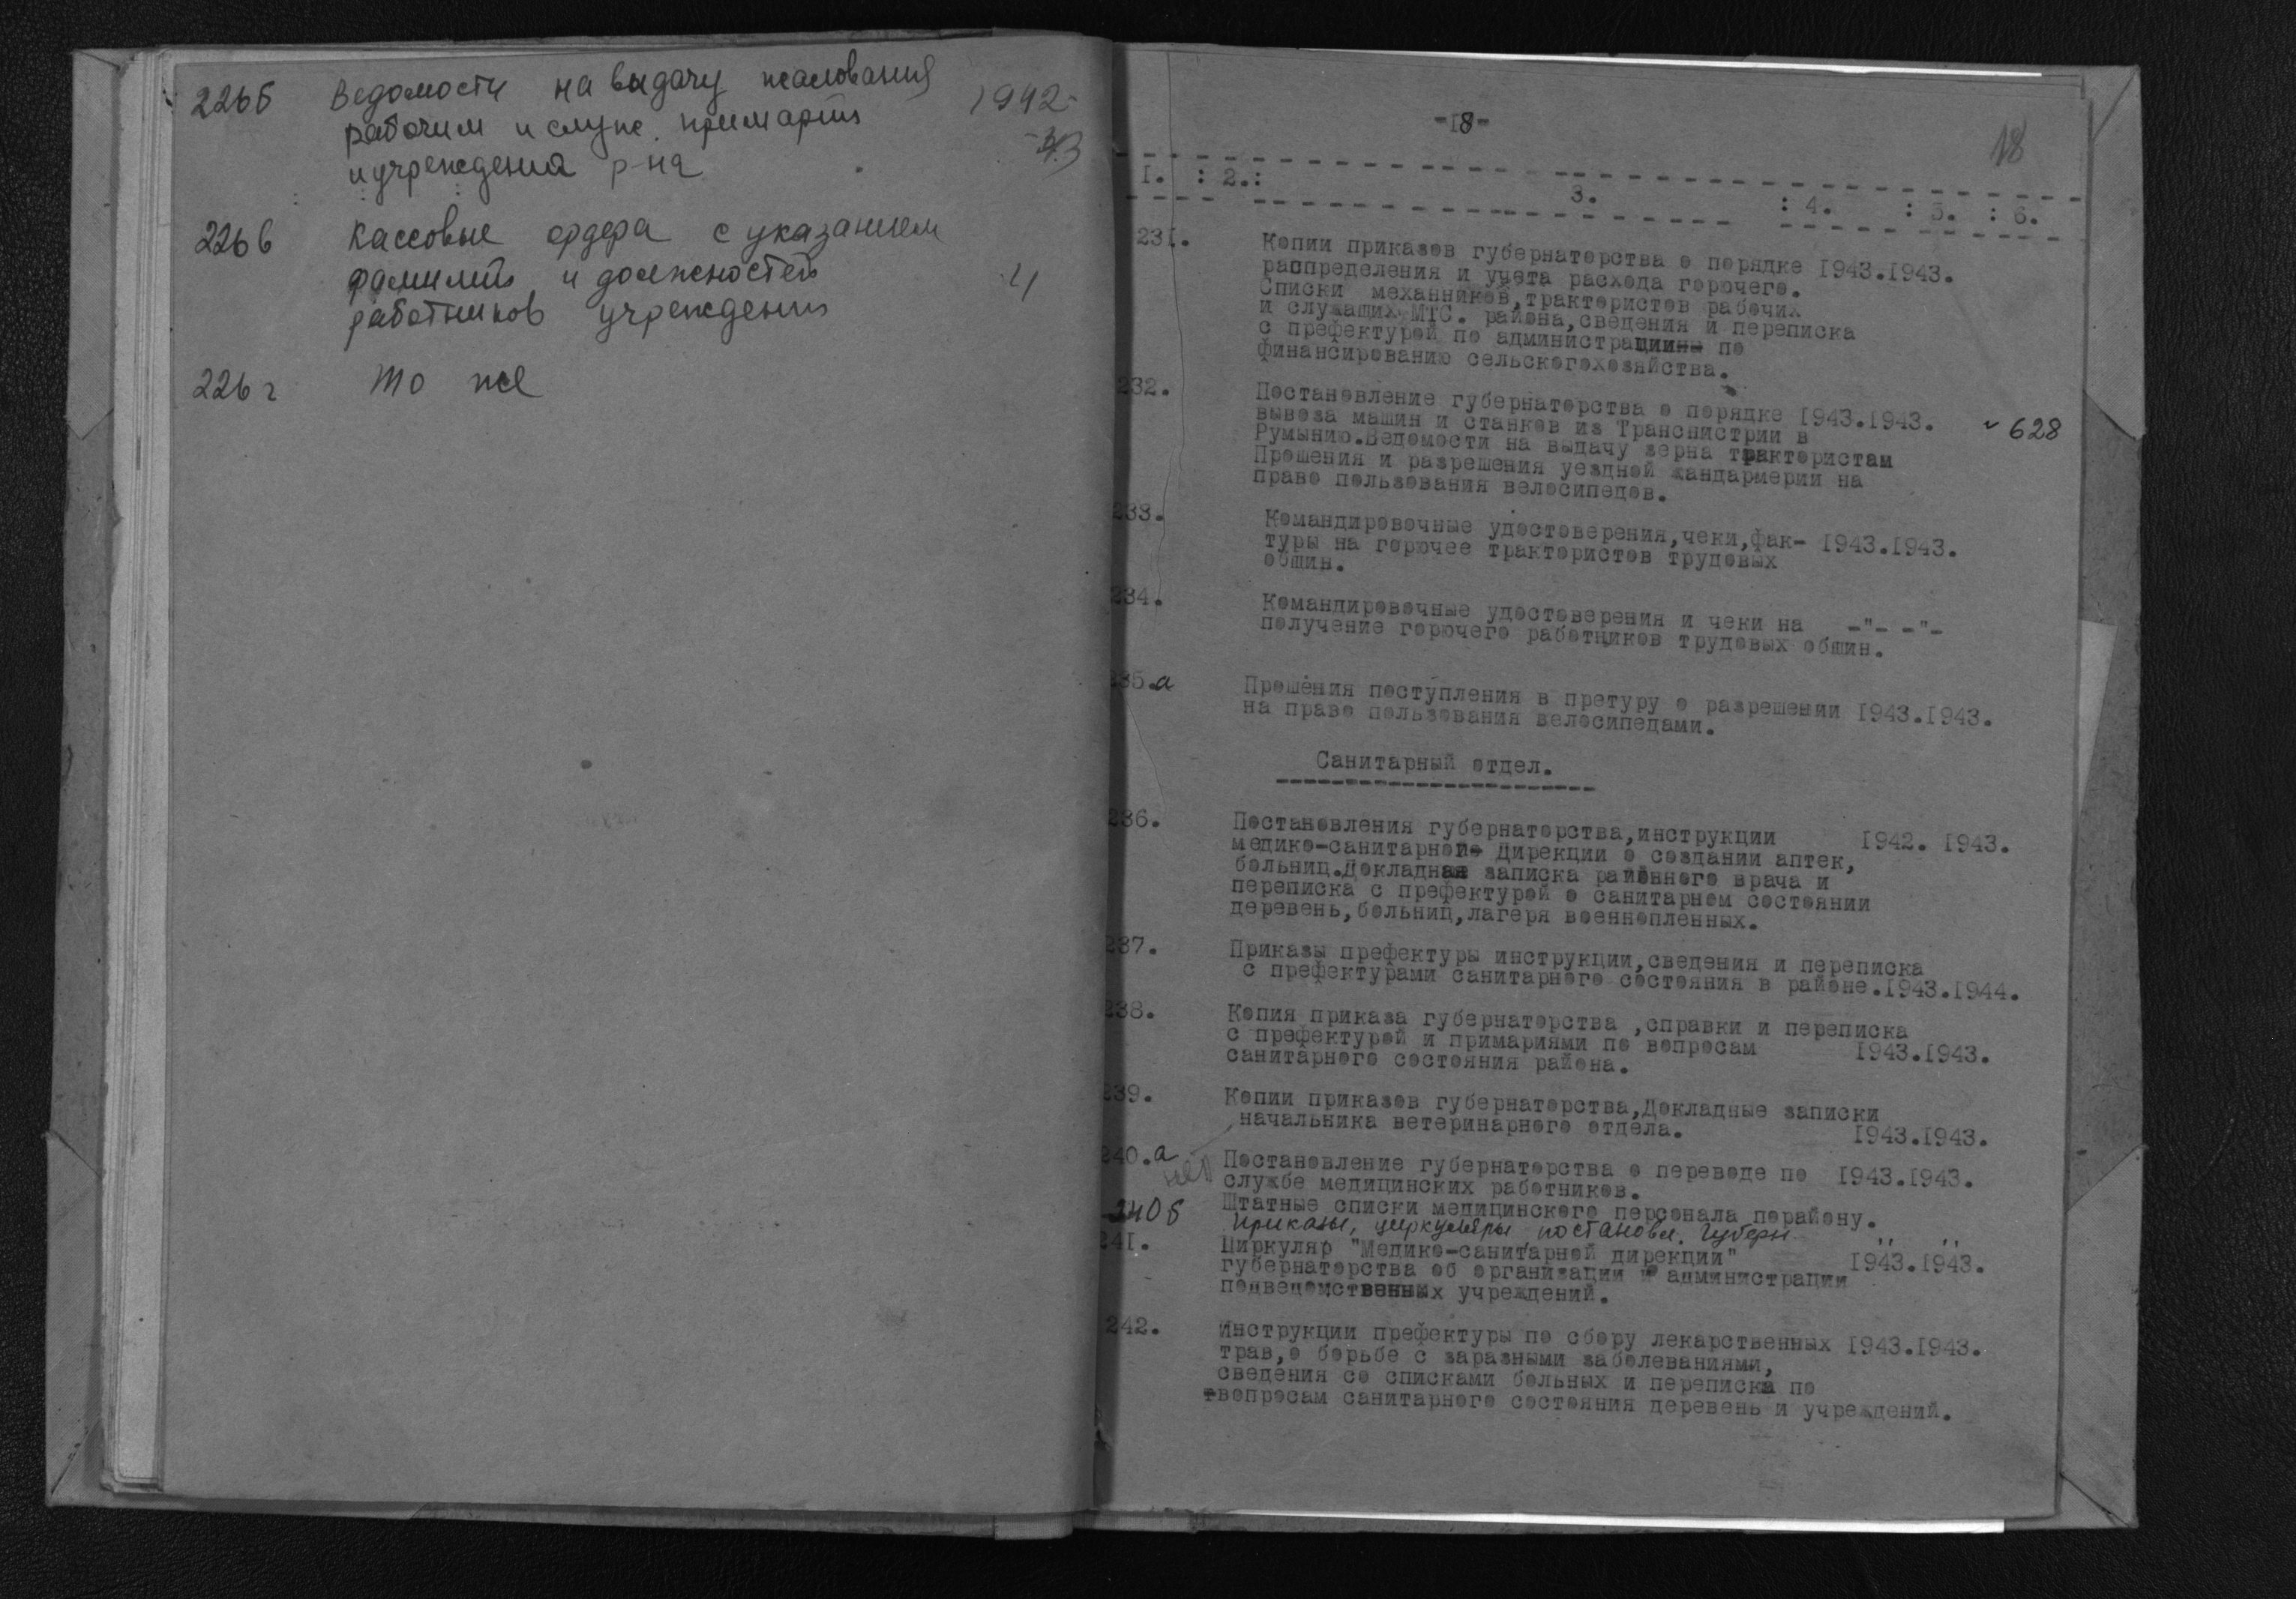 226б Ведомости на выдачу жалования 1942-
рабочим и служ. примарий -43
и учреждений р-на
226в Кассовые ордера с указанием
фамилий и должностей 4
работников учреждений
226г То же
-18-
18
1. : 2.: 3. : 4. : 5. : 6.
231. Копии приказов губернаторства о порядке 1943.1943.
распределения и учета расхода горючего.
Списки механников,трактористов рабочих
и служащих МТС. района,сведения и переписка
с префектурой по администрации по
финансированию сельскогохозяйства.
232. Постановление губернаторства о порядке 1943.1943. 628
вывоза машин и станков из Транснистрии в
Румынию.Ведомости на выдачу зерна трактористам
Прошения и разрешения уездной жандармерии на
право пользования велосипедов.
233. Командировочные удостоверения,чеки,фак- 1943.1943.
туры на горючее трактористов трудовых
общин.
234. Командировочные удостоверения и чеки на -"- -"-
получение горючего работников трудовых общин.
235.а Прошения поступления в претуру о разрешении 1943.1943.
на право пользования велосипедами.
Санитарный отдел.
236. Постановления губернаторства,инструкции 1942. 1943.
медико-санитарной Дирекции о создании аптек,
больниц.Докладная записка районного врача и
переписка с префектурой о санитарном состоянии
деревень,больниц,лагеря военнопленных.
237. Приказы префектуры инструкции,сведения и переписка
с префектурами санитарного состояния в районе.1943.1944.
238. Копия приказа губернаторства ,справки и переписка
с префектурой и примариями по вопросам 1943.1943.
санитарного состояния района.
239. Копии приказов губернаторства,Докладные записки
начальника ветеринарного отдела. 1943.1943.
240.а Постановление губернаторства о переводе по 1943.1943.
нет службе медицинских работников.
Штатные списки медицинского персонала порайону.
240б Приказы, циркуляры постановл. Губерн " "
241. Циркуляр "Медико-санитарной дирекции" 1943.1943.
губернаторства об организации и администрации
подведомственных учреждений.
242. Инструкции префектуры по сбору лекарственных 1943.1943.
трав,о борьбе с заразными заболеваниями,
сведения со списками больных и переписка по
вопросам санитарного состояния деревень и учреждений.